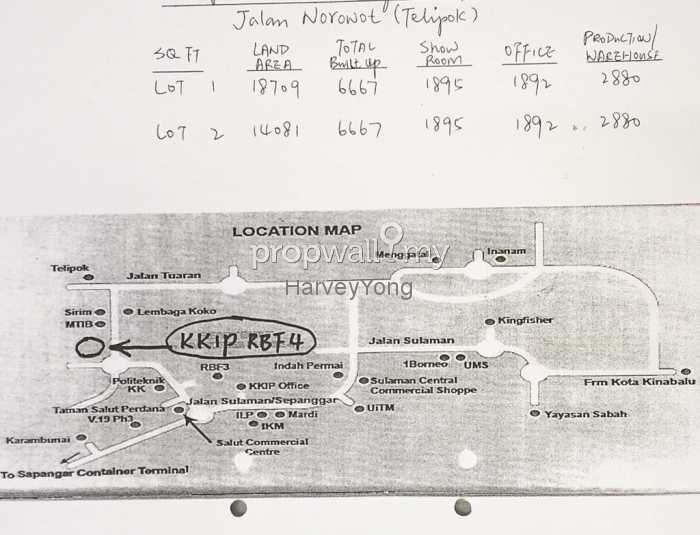 Jalan Norowot (Telipok)
SQ FT LAND AREA TOTAL Built up SHOW ROOM OFFICE PRODUCTION/ WAREHOUSE
LOT 1 18709 6667 1895 1892 2880
LOT 2 14081 6667 1895 1892 2880
LOCATION MAP
propwall.my
HarveyYong
Menggatal
Inanam
Telipok
Jalan Tuaran
Sirim
Lembaga Koko
MTIB
Kingfisher
KKIP RBF4
Jalan Sulaman
RBF3
Indah Permai
1Borneo
UMS
Politeknik
KK
KKIP Office
Sulaman Central
Commercial Shoppe
Frm Kota Kinabalu
Jalan Sulaman/Sepanggar
Taman Salut Perdana
V.19 Ph3
ILP
Mardi
UiTM
Yayasan Sabah
IKM
Karambunai
Salut Commercial
Centre
To Sapangar Container Terminal